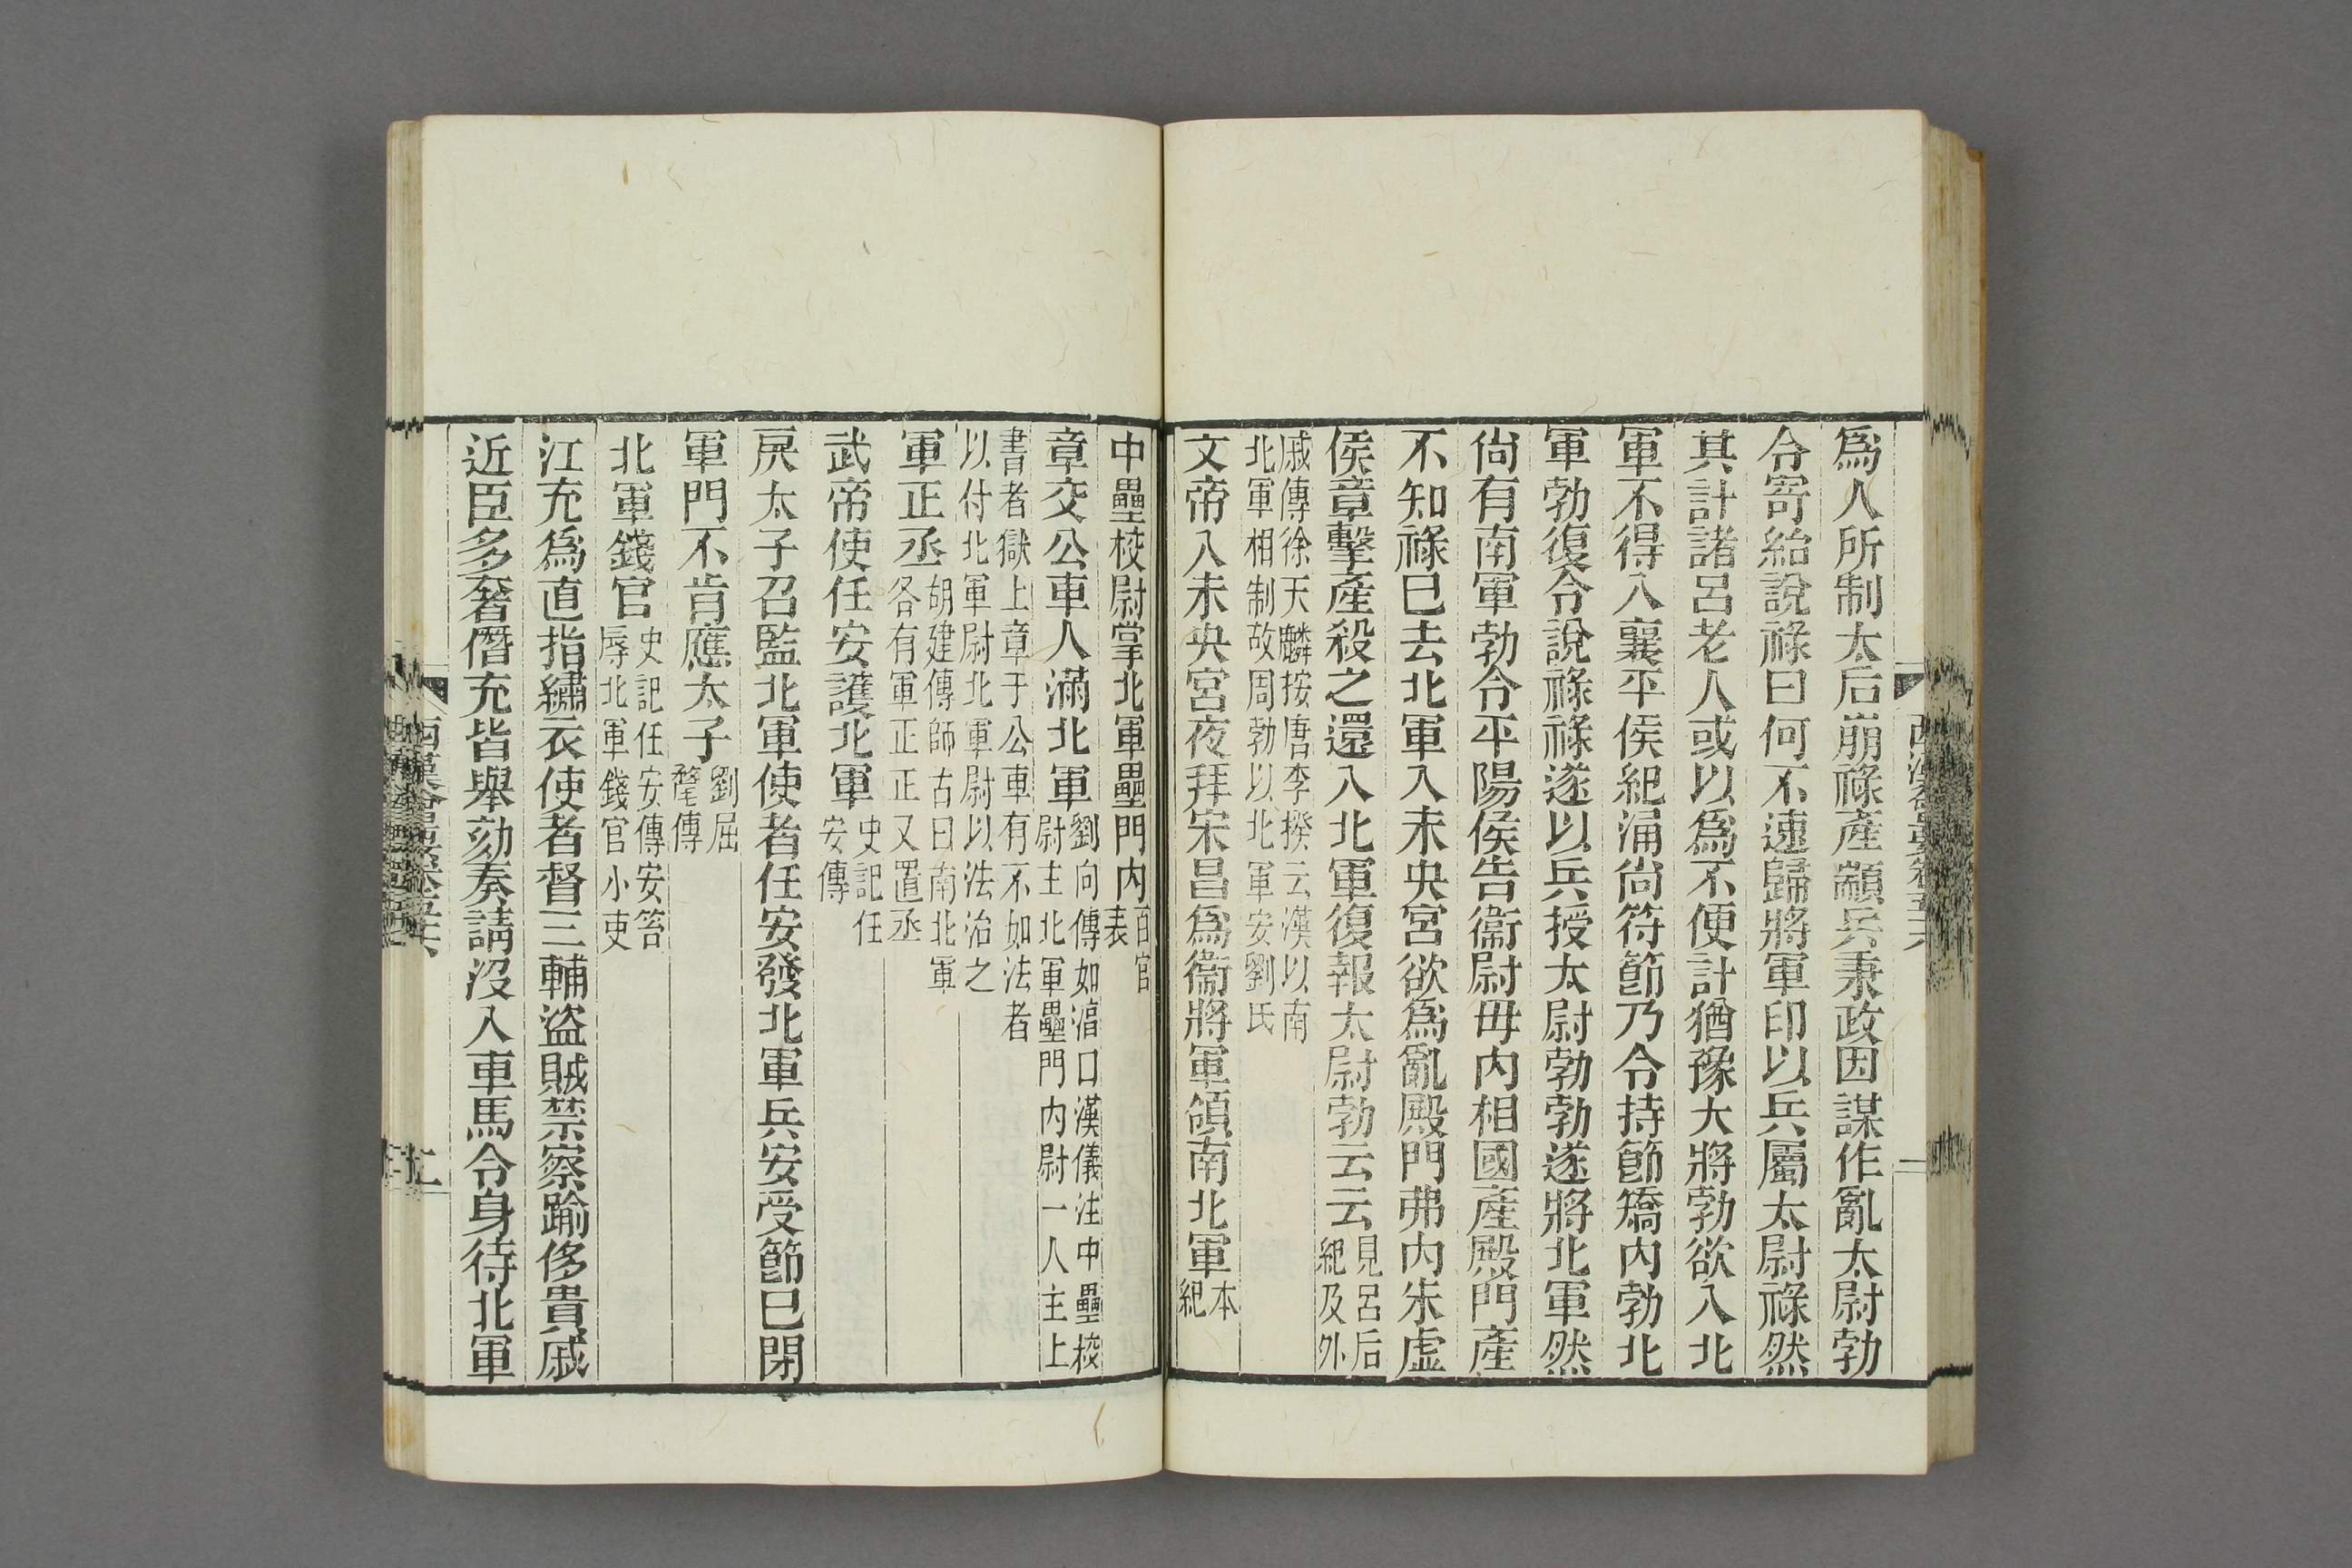 爲人所制太后崩祿產顓兵秉政因謀作亂太尉勃
令寄紿說祿曰何不速歸將軍印以兵屬太尉祿然
其計諸呂老人或以爲不便計猶豫大將勃欲入北
軍不得入襄平侯紀涌尚符節乃令持節矯內勃北
軍勃復令說祿祿遂以兵授太尉勃勃遂將北軍然
尚有南軍勃令平陽侯告衞尉毋內相國產殿門產
不知祿已去北軍入未央宮欲爲亂殿門弗內朱虛
侯章擊產殺之還入北軍復報太尉勃云云見呂后
紀及外
戚傳徐天麟按唐李揆云漢以南
北軍相制故周勃以北軍安劉氏
文帝入未央宮夜拜宋昌爲衞將軍領南北軍本
紀
中壘校尉掌北軍壘門內百官
表
章交公車人滿北軍劉向傳如湻曰漢儀注中壘校
尉主北軍壘門內尉一人主上
書者獄上章于公車有不如法者
以付北軍尉北軍尉以法治之
軍正丞胡建傳師古曰南北軍
各有軍正正又置丞
武帝使任安護北軍史記任
安傳
戾太子召監北軍使者任安發北軍兵安受節已閉
軍門不肯應太子劉屈
氂傳
北軍錢官史記任安傳安笞
辱北軍錢官小吏
江充爲直指繡衣使者督三輔盜賊禁察踰侈貴戚
近臣多奢僭充皆舉劾奏請沒入車馬令身待北軍